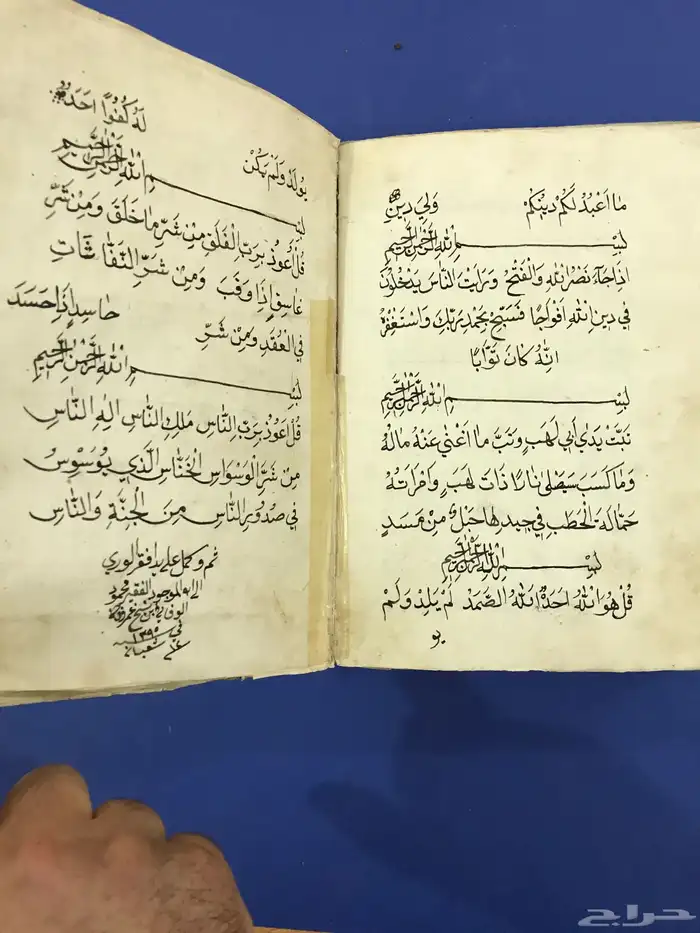 ما اعبد لكم دينكم ولي دين
بسم الله الرحمن الرحيم
اذا جاء نصر الله والفتح ورايت الناس يدخلون
في دين الله افواجا فسبح بحمد ربك واستغفره
انه كان توابا
بسم الله الرحمن الرحيم
تبت يدي ابي لهب وتب ما اغني عنه ماله
وما كسب سيصلى نارا ذات لهب وامراته
حمالة الحطب في جيدها حبل من مسد
بسم الله الرحمن الرحيم
قل هو الله احد الله الصمد لم يلد ولم
يو
يولد ولم يكن له كفوا احد
بسم الله الرحمن الرحيم
قل أعوذ برب الفلق من شر ما خلق ومن شر
غاسق إذا وقب ومن شر النفاثات
في العقد ومن شر حاسد إذا حسد
بسم الله الرحمن الرحيم
قل اعوذ برب الناس ملك الناس اله الناس
من شر الوسواس الخناس الذي يوسوس
في صدور الناس من الجنة والناس
تم وكمل على يد افقر الوري
الى الموجود الفقير محمود
في
شعبان
حراج